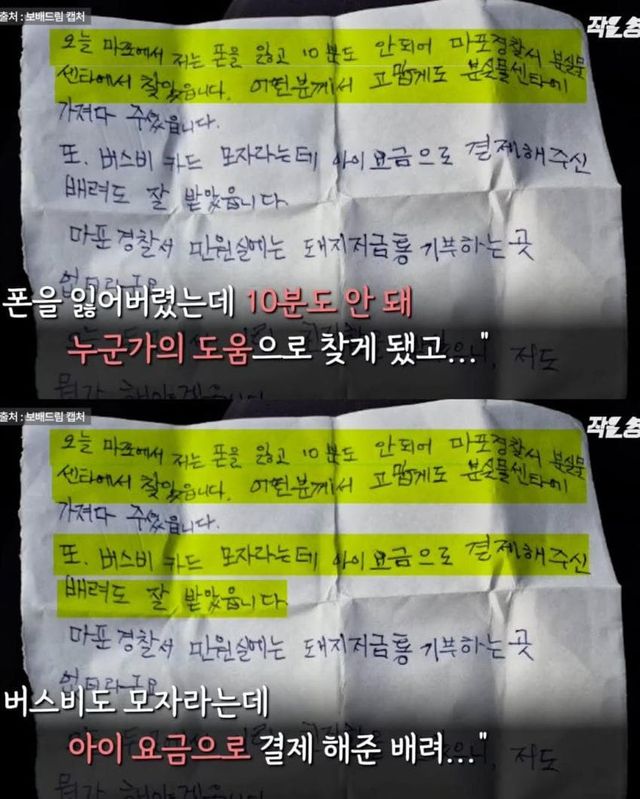 출처 : 보배드림 캡처
오늘 마포에서 저는 폰을 잃고 10분도 안되어 마포경찰서 분실물
센타에서 찾았습니다. 어떤분께서 고맙게도 분실물센타에
가져다 주셨읍니다.
또. 버스비 카드 모자라는데 아이요금으로 결제해주신
배려도 잘 받았읍니다.
마포경찰서 민원실에는 돼지저금통 기부하는곳
폰을 잃어버렸는데 10분도 안 돼
누군가의 도움으로 찾게 됐고..."
저도
출처 : 보배드림 캡처
오늘 마포에서 저는 폰을 잃고 10분도 안되어 마포경찰서 분실물
센타에서 찾았습니다. 어떤분께서 고맙게도 분실물센타에
가져다 주셨읍니다.
또. 버스비 카드 모자라는데 아이요금으로 결제해주신
배려도 잘 받았읍니다.
마포경찰서 민원실에는 돼지저금통 기부하는곳
버스비도 모자라는데
아이 요금으로 결제 해준 배려..."
저도